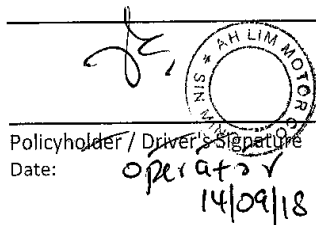 AH LIM MOTOR CO
SIN MIN
Policyholder / Driver's Signature
Date: operator
14/09/18